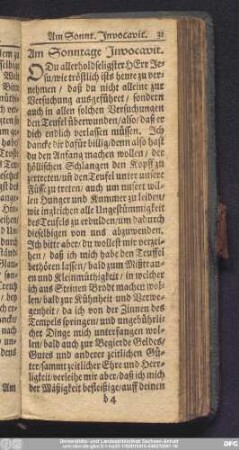 Am Sonnt. Invocavit. 31
Am Sonntage Invocavit.
O Du allerholdseligster HErr Je-
su/ wie tröstlich ists heute zu ver-
nehmen / daß du nicht alleine zur
Versuchung ausgeführet / sondern
auch in allen solchen Versuchungen
den Teufel überwunden/also/ daß er
dich endlich verlassen müssen. Ich
dancke dir dafür billig/ denn also hast
du den Anfang machen wollen / der
höllischen Schlangen den Kopff zu
zertreten/ uñ den Teufel unter unsere
Füße zu treten/ auch um unsert wil-
len Hunger und Kummer zu leiden/
wie ingleichen alle Ungestümmigkeit
des Teufels zu erdulden/ um dadurch
dieselbigen von uns abzuwenden.
Ich bitte aber/ du wollest mir verzei-
hen / daß ich mich habe den Teuffel
bethören lassen/ bald zum Mißtrauen
und Kleinmüthigkeit / in welcher
ich aus Steinen Brodt machen wol-
len/ bald zur Kühnheit und Verwe-
genheit / da ich von der Zinnen des
Tempels springen/ und ungebührli-
cher Dinge mich unterfangen wol-
len/ bald auch zur Begierde Geldes/
Gutes und anderer zeitlichen Gü-
ter/ sammt zeitlicher Ehre und Herr-
ligkeit/ verleihe mir aber/ daß ich mich
der Mäßigkeit befleißige/ auf deinen
b 4
Am